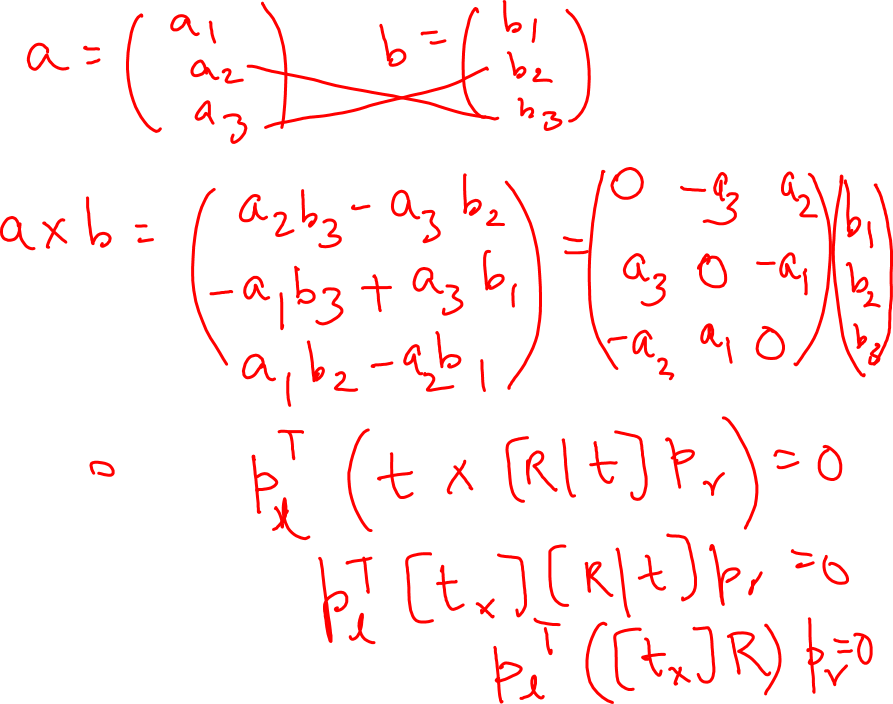 a = (a₁ a₂ a₃) b = (b₁ b₂ b₃)
a × b = (a₂b₃ - a₃b₂ -a₁b₃ + a₃b₁ a₁b₂ - a₂b₁) = (0 -a₃ a₂ a₃ 0 -a₁ -a₂ a₁ 0)(b₁ b₂ b₃)
p_l^T (t × [R|t] p_r) = 0
p_l^T [t_x] [R|t] p_r = 0
p_l^T ([t_x] R) p_r = 0